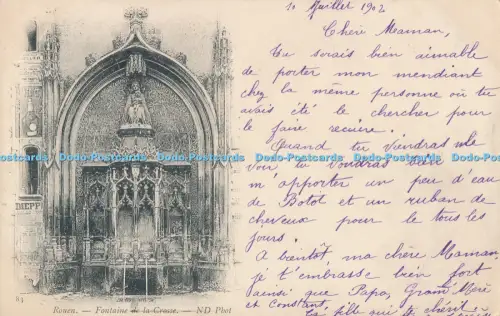 10 Juillet 1902
Chère Maman,
Tu serais bien aimable
de porter mon mendiant
chez la même personne où tu
avais été le chercher pour
le faire recuire.
Quand tu viendras me
voir, tu voudras bien
m'apporter un peu d'eau
de Botot et un ruban de
cheveux pour le tous les
jours.
A bientôt, ma chère Maman,
je t'embrasse bien fort
ainsi que Papa, Grand'Mère
et Constant,
Ta fille qui te chérit
DIEPP
84
Rouen. — Fontaine de la Crosse. — ND Phot
Postcards Postcards Postcards Postcards Postcards Postcards Postcards